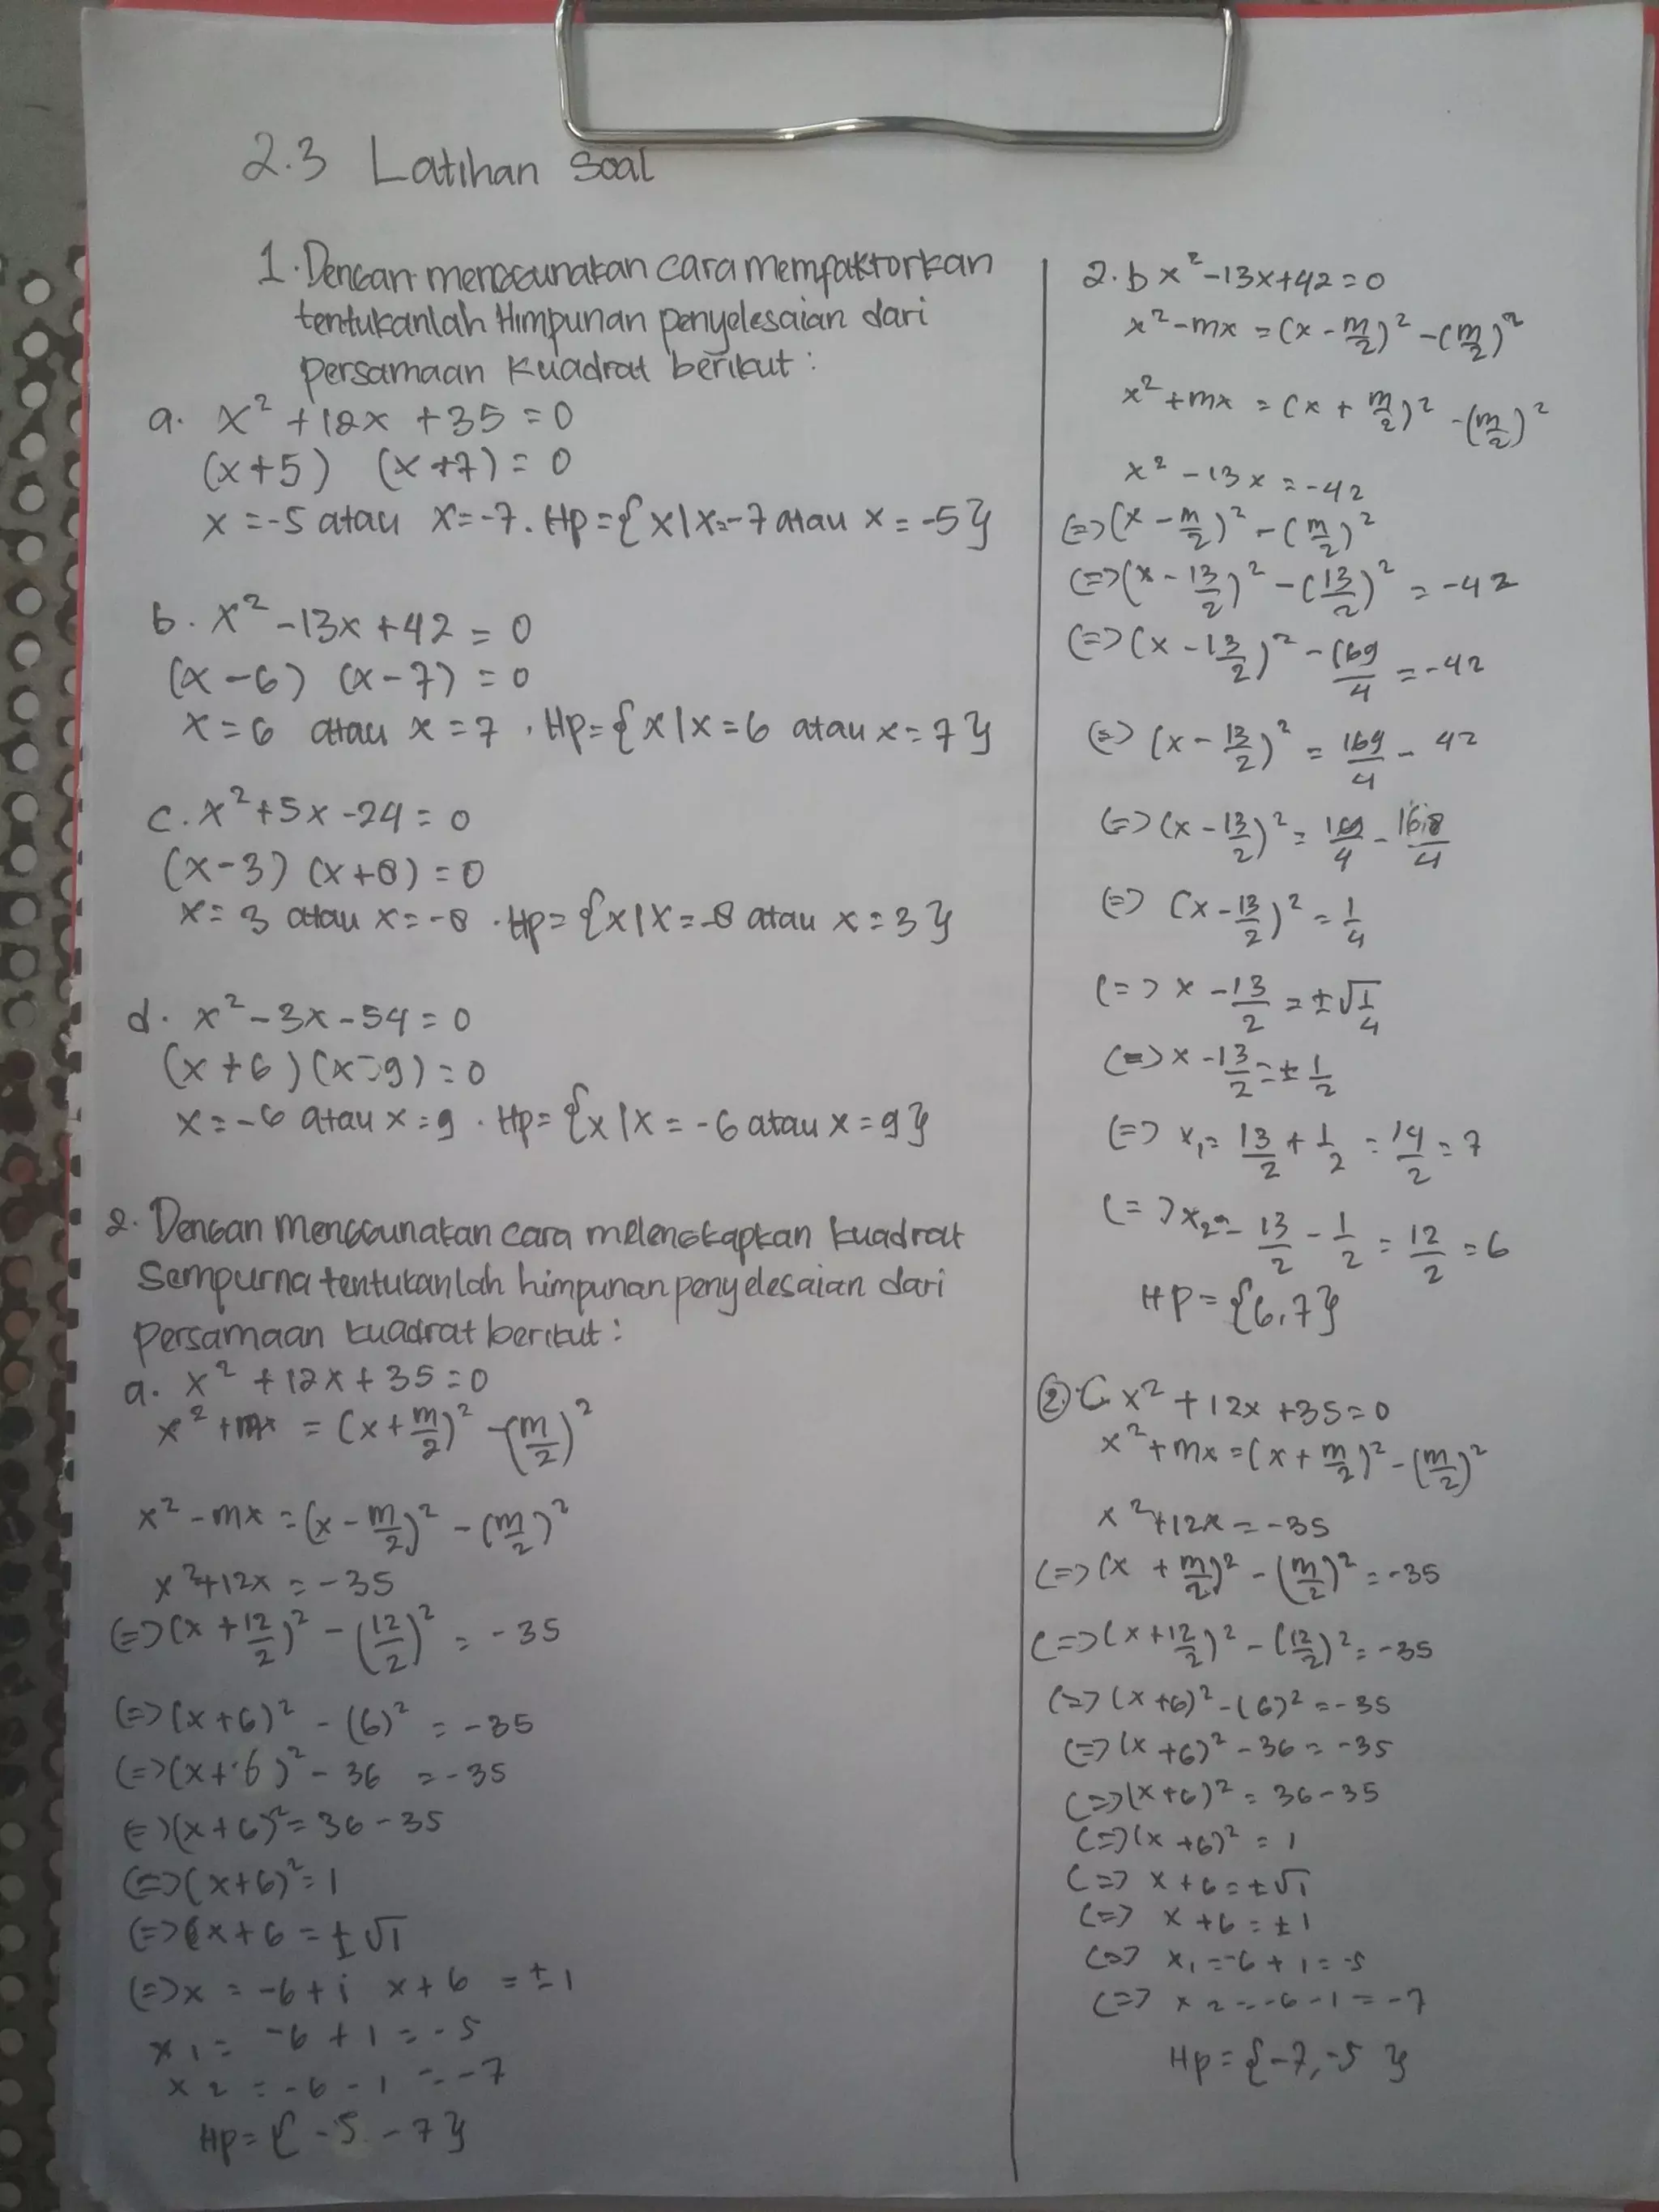 2.3 Latihan Soal
1. Dengan menggunakan cara memfaktorkan
tentukanlah Himpunan penyelesaian dari
persamaan kuadrat berikut :
a. x² + 12x + 35 = 0
(x+5) (x+7) = 0
x = -5 atau x = -7. Hp = {x | x = -7 atau x = -5}
b. x² - 13x + 42 = 0
(x - 6) (x - 7) = 0
x = 6 atau x = 7, Hp = {x | x = 6 atau x = 7}
c. x² + 5x - 24 = 0
(x - 3) (x + 8) = 0
x = 3 atau x = -8 . Hp = {x | x = -8 atau x = 3}
d. x² - 3x - 54 = 0
(x + 6) (x - 9) = 0
x = -6 atau x = 9 . Hp = {x | x = -6 atau x = 9}
2. Dengan menggunakan cara melengkapkan kuadrat
Sempurna tentukanlah himpunan penyelesaian dari
persamaan kuadrat berikut :
a. x² + 12x + 35 = 0
x² + mx = (x + m/2)² - (m/2)²
x² - mx = (x - m/2)² - (m/2)²
x² + 12x = -35
(=> (x + 12/2)² - (12/2)² = -35
(=> (x+6)² - (6)² = -35
(=> (x+6)² - 36 = -35
(=> (x+6)² = 36 - 35
(=> (x+6)² = 1
(=> x + 6 = ± √1
(=> x = -6 + i x + 6 = ± 1
x1 = -6 + 1 = -5
x2 = -6 - 1 = -7
Hp = { -5 -7 }
2. b x² - 13x + 42 = 0
x² - mx = (x - m/2)² - (m/2)²
x² + mx = (x + m/2)² - (m/2)²
x² - 13x = -42
(=> (x - m/2)² - (m/2)²
(=> (x - 13/2)² - (13/2)² = -42
(=> (x - 13/2)² - 169/4 = -42
(=> (x - 13/2)² = 169/4 - 42
(=> (x - 13/2)² = 169/4 - 168/4
(=> (x - 13/2)² = 1/4
(=> x - 13/2 = ± √1/4
(=> x - 13/2 = ± 1/2
(=> x1 = 13/2 + 1/2 = 14/2 = 7
(=> x2 = 13/2 - 1/2 = 12/2 = 6
HP = {6,7}
2. C x² + 12x + 35 = 0
x² + mx = (x + m/2)² - (m/2)²
x² + 12x = -35
(=> (x + m/2)² - (m/2)² = -35
(=> (x + 12/2)² - (12/2)² = -35
(=> (x+6)² - (6)² = -35
(=> (x+6)² - 36 = -35
(=> (x+6)² = 36 - 35
(=> (x+6)² = 1
(=> x + 6 = ± √1
(=> x + 6 = ± 1
(=> x1 = -6 + 1 = -5
(=> x2 = -6 - 1 = -7
Hp = {-7, -5 }